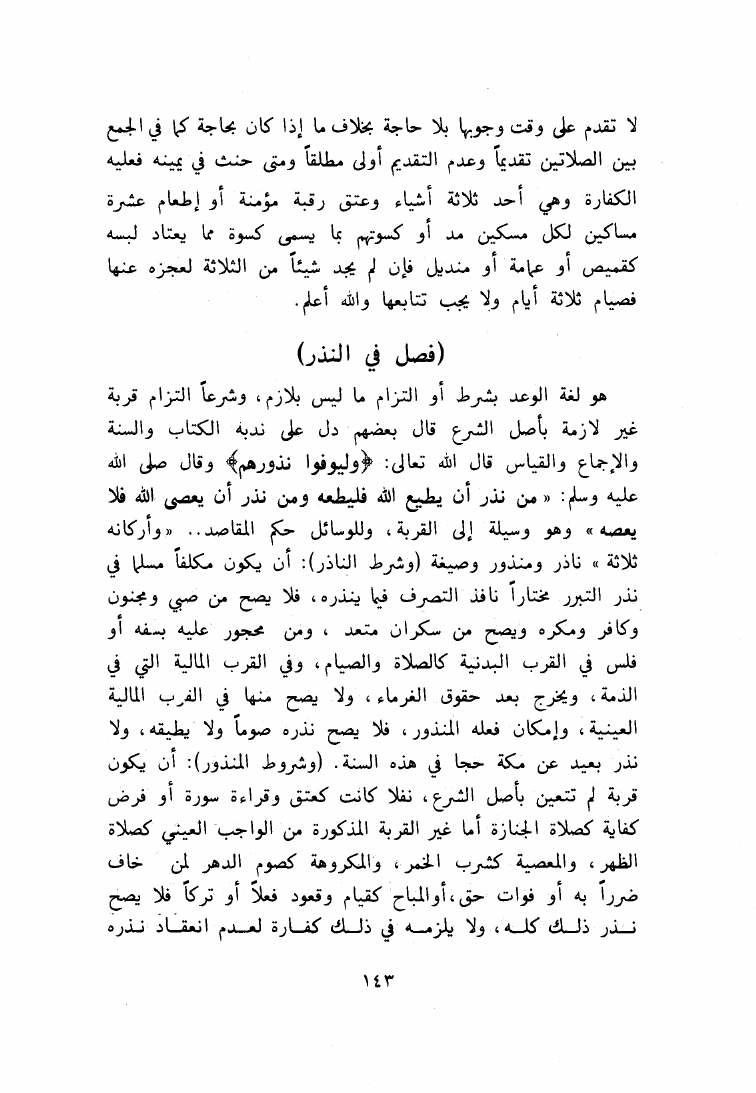 لا تقدم على وقت وجوبها بلا حاجة بخلاف ما إذا كان بحاجة كما في الجمع
بين الصلاتين تقديماً وعدم التقديم أولى مطلقاً ومتى حنث في يمينه فعليه
الكفارة وهي أحد ثلاثة أشياء وعتق رقبة مؤمنة أو إطعام عشرة
مساكين لكل مسكين مد أو كسوتهم بما يسمى كسوة مما يعتاد لبسه
كقميص أو عمامة أو منديل فإن لم يجد شيئاً من الثلاثة لعجزه عنها
فصيام ثلاثة أيام ولا يجب تتابعها والله أعلم.
(فصل في النذر)
هو لغة الوعد بشرط أو التزام ما ليس بلازم، وشرعاً التزام قربة
غير لازمة بأصل الشرع قال بعضهم دل على ندبه الكتاب والسنة
والإجماع والقياس قال الله تعالى: ﴿وليوفوا نذورهم﴾ وقال صلى الله
عليه وسلم: « من نذر أن يطيع الله فليطعه ومن نذر أن يعصى الله فلا
يعصه » وهو وسيلة إلى القربة، وللوسائل حكم المقاصد.. « وأركانه
ثلاثة » ناذر ومنذور وصيغة (وشرط الناذر): أن يكون مكلفاً مسلما في
نذر التبرر مختاراً نافذ التصرف فيما ينذره، فلا يصح من صبي ومجنون
وكافر ومكره ويصح من سكران متعد ، ومن محجور عليه بسفه أو
فلس في القرب البدنية كالصلاة والصيام، وفي القرب المالية التي في
الذمة، ويخرج بعد حقوق الغرماء، ولا يصح منها في القرب المالية
العينية، وإمكان فعله المنذور، فلا يصح نذره صوماً ولا يطيقه، ولا
نذر بعيد عن مكة حجا في هذه السنة. (وشروط المنذور): أن يكون
قربة لم تتعين بأصل الشرع، نفلا كانت كعتق وقراءة سورة أو فرض
كفاية كصلاة الجنازة أما غير القربة المذكورة من الواجب العيني كصلاة
الظهر، والمعصية كشرب الخمر، والمكروهة كصوم الدهر لمن خاف
ضرراً به أو فوات حق،أوالمباح كقيام وقعود فعلاً أو تركاً فلا يصح
نذر ذلك كله، ولا يلزمه في ذلك كفارة لعدم انعقاد نذره
١٤٣